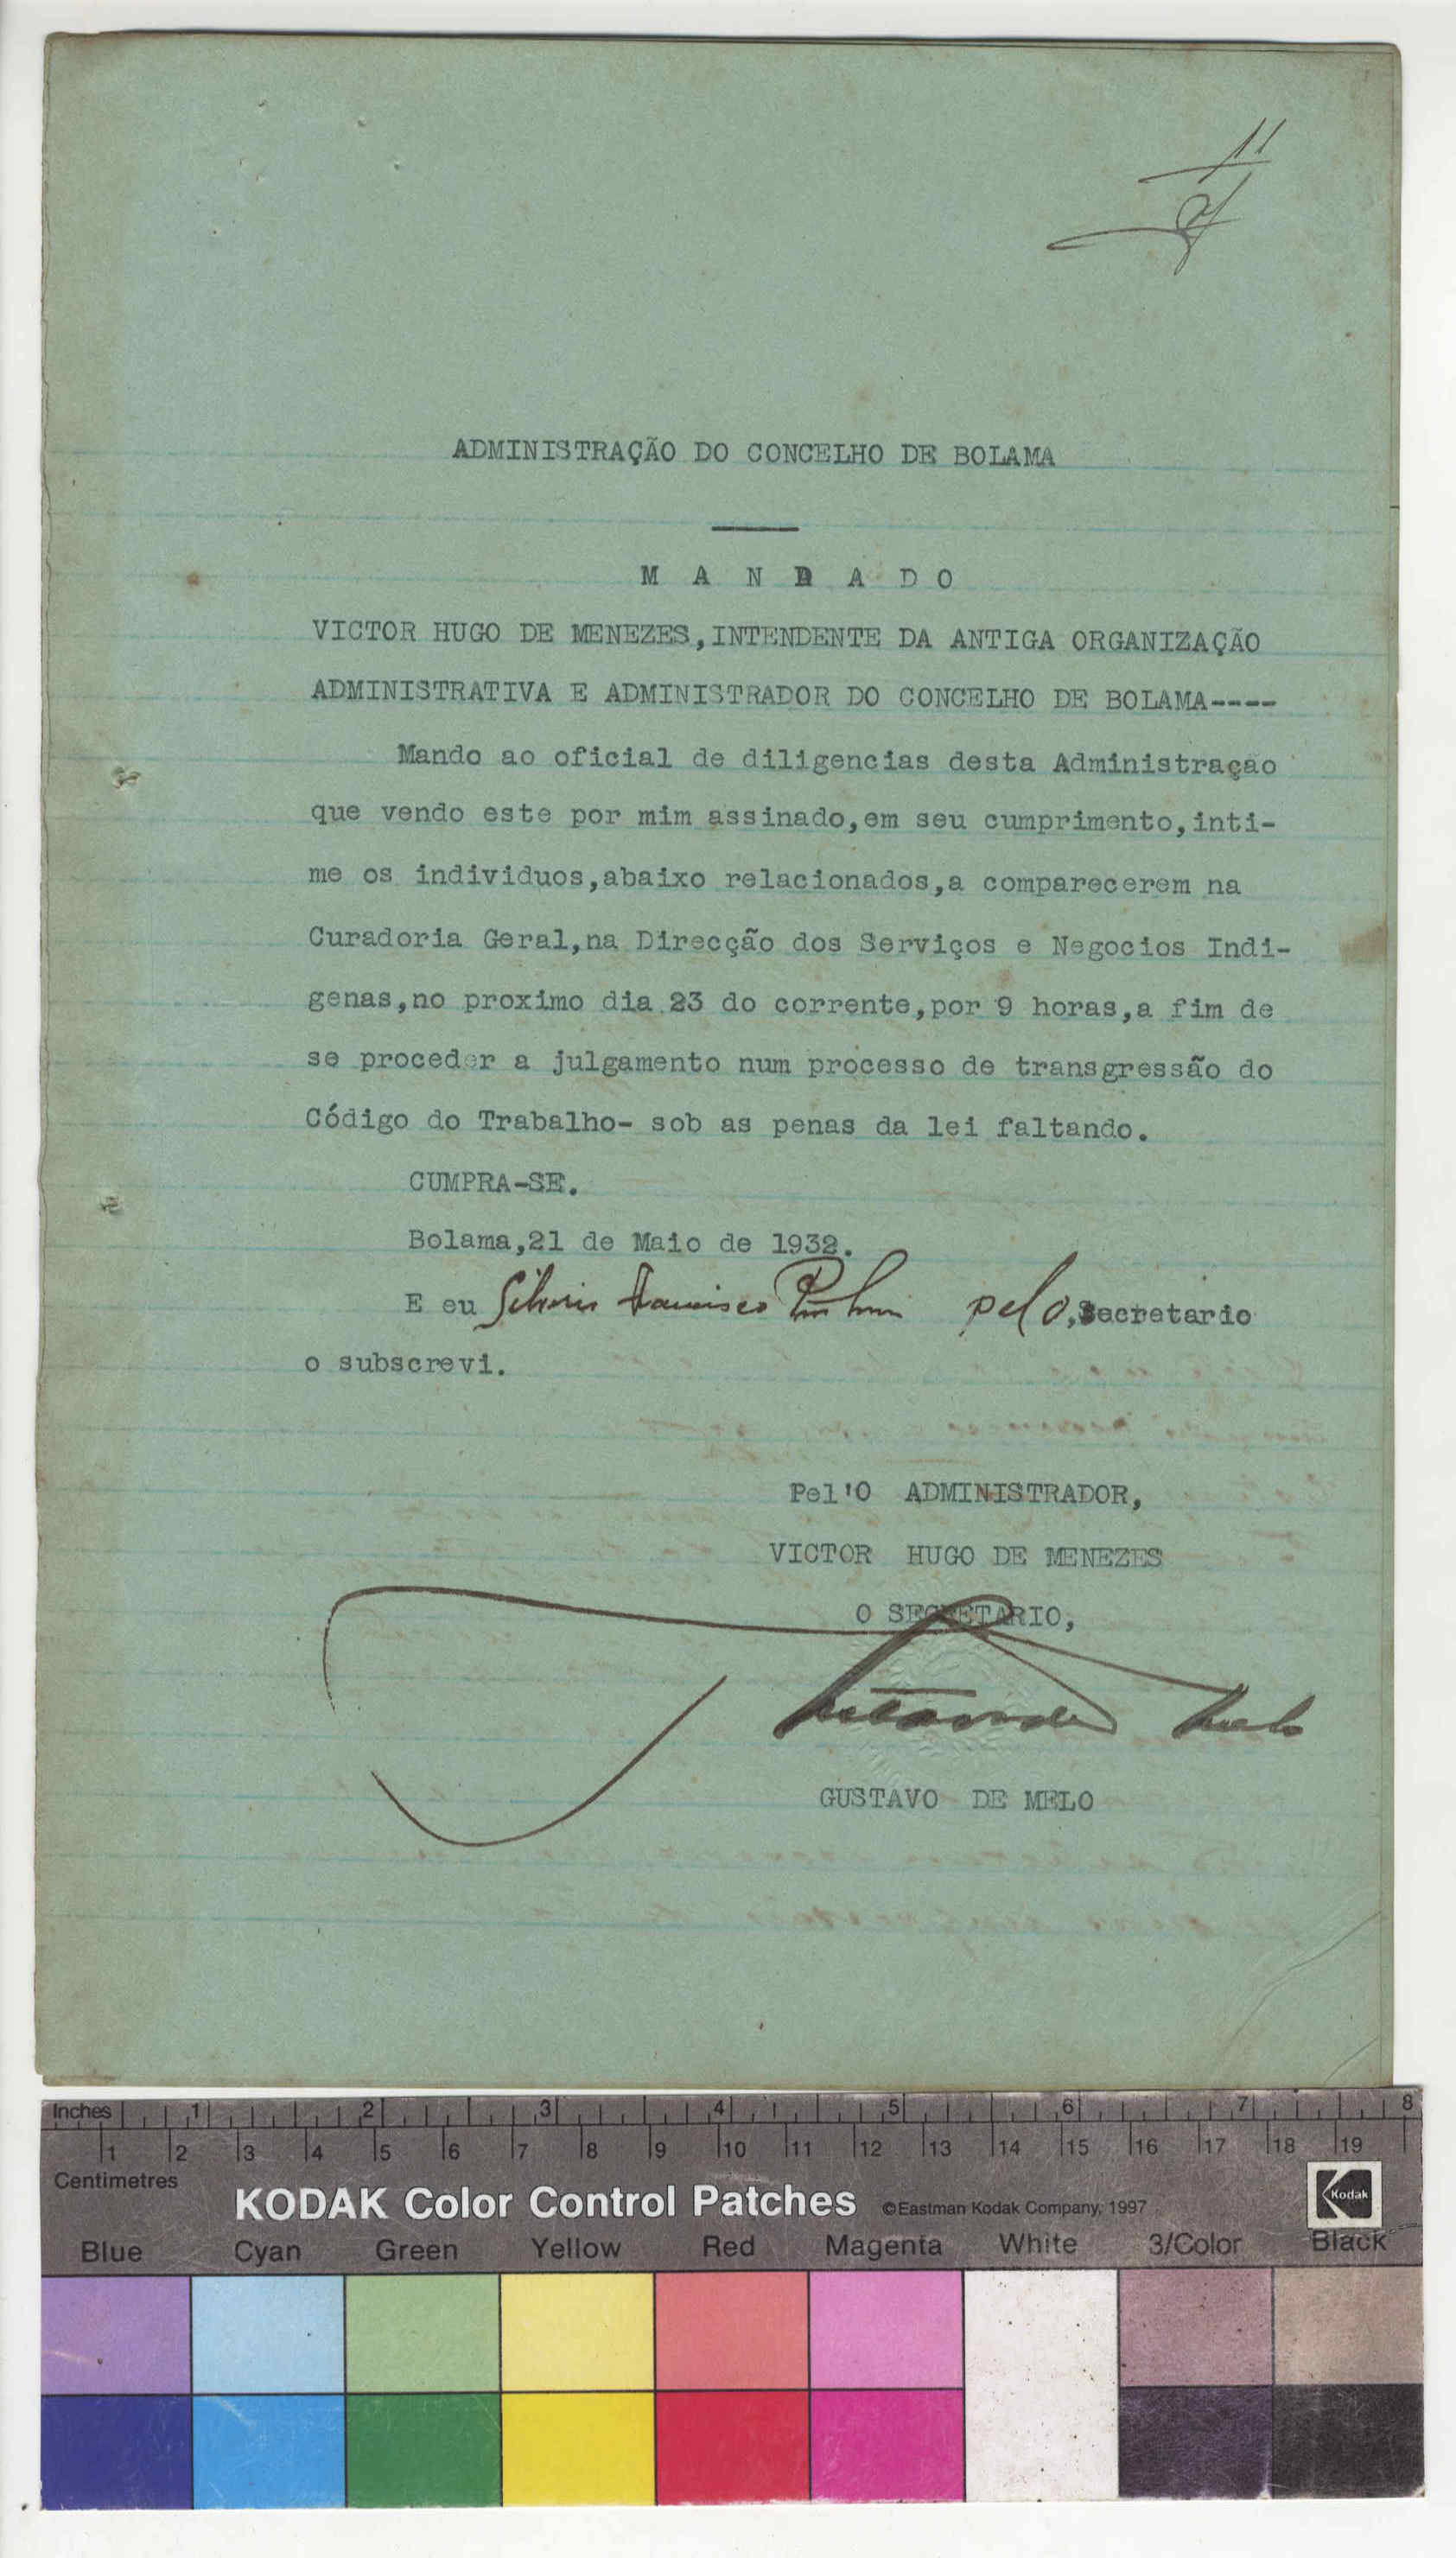 11
ADMINISTRAÇÃO DO CONCELHO DE BOLAMA
M A N D A D O
VICTOR HUGO DE MENEZES,INTENDENTE DA ANTIGA ORGANIZAÇÃO
ADMINISTRATIVA E ADMINISTRADOR DO CONCELHO DE BOLAMA----
Mando ao oficial de diligencias desta Administração
que vendo este por mim assinado,em seu cumprimento,inti-
me os individuos,abaixo relacionados,a comparecerem na
Curadoria Geral,na Direcção dos Serviços e Negocios Indi-
genas,no proximo dia 23 do corrente,por 9 horas,a fim de
se proceder a julgamento num processo de transgressão do
Código do Trabalho- sob as penas da lei faltando.
CUMPRA-SE.
Bolama,21 de Maio de 1932.
E eu Francisco pelo,secretario
o subscrevi.
Pel'O ADMINISTRADOR,
VICTOR HUGO DE MENEZES
O SECRETARIO,
Melo
GUSTAVO DE MELO
Inches 1 2 3 4 5 6 7 8
1 2 3 4 5 6 7 8 9 10 11 12 13 14 15 16 17 18 19
Centimetres
KODAK Color Control Patches ©Eastman Kodak Company, 1997 Kodak
Blue Cyan Green Yellow Red Magenta White 3/Color Black